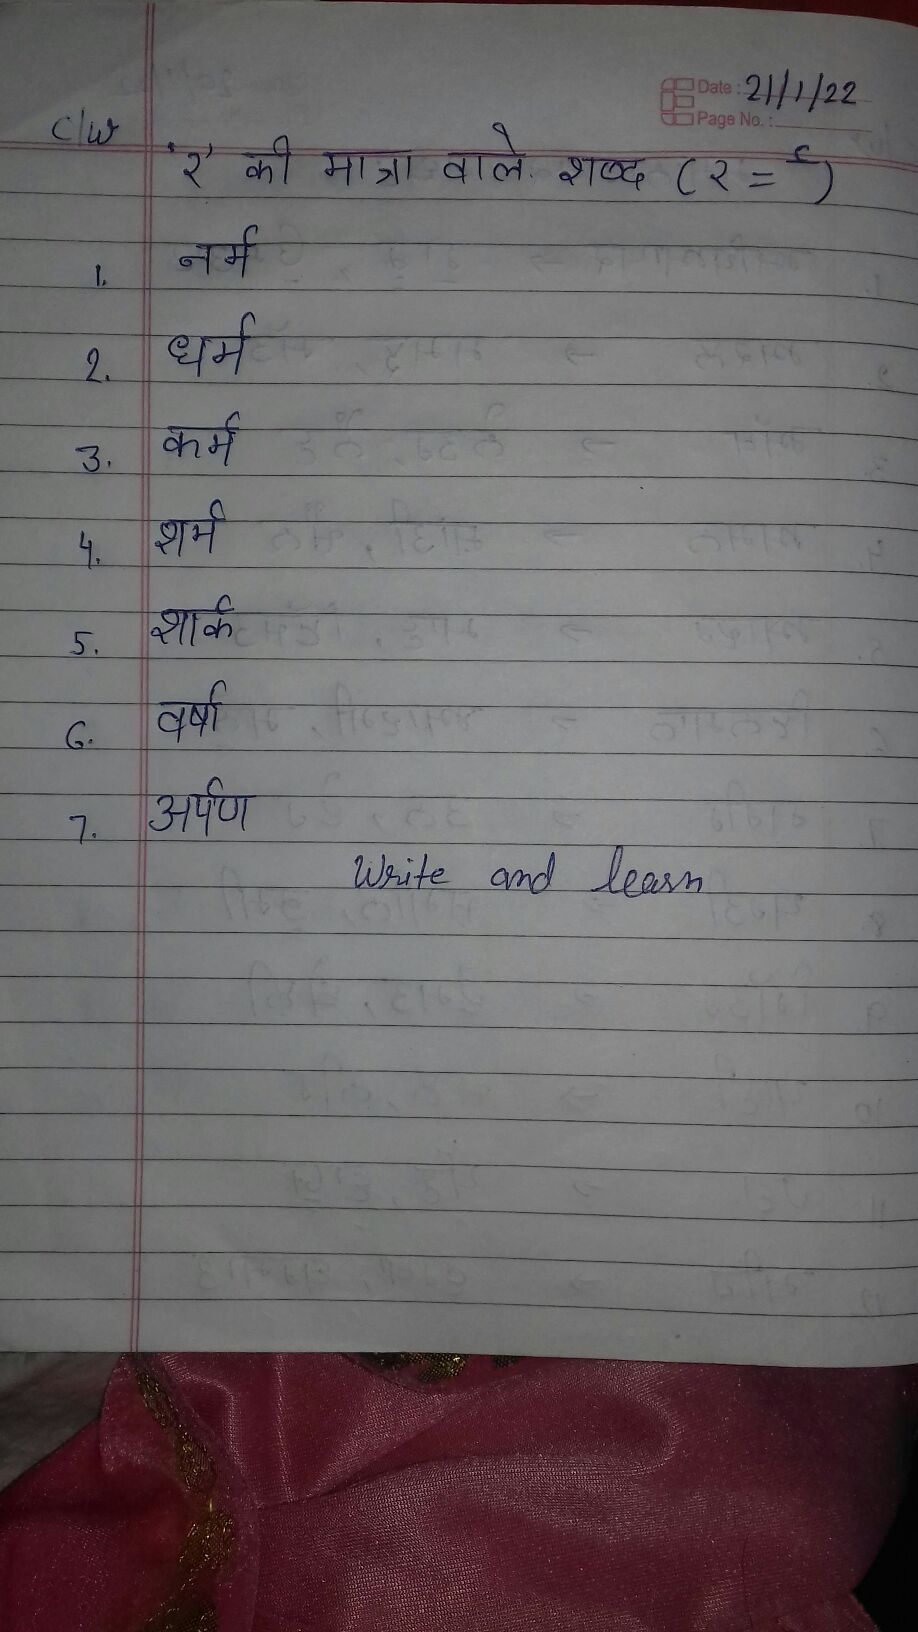 Date : 21/1/22
Page No. :
C/W
'र' की मात्रा वाले शब्द (र = र्)
1. नर्म
2. धर्म
3. कर्म
4. शर्म
5. शार्क
6. वर्षा
7. अर्पण
Write and learn